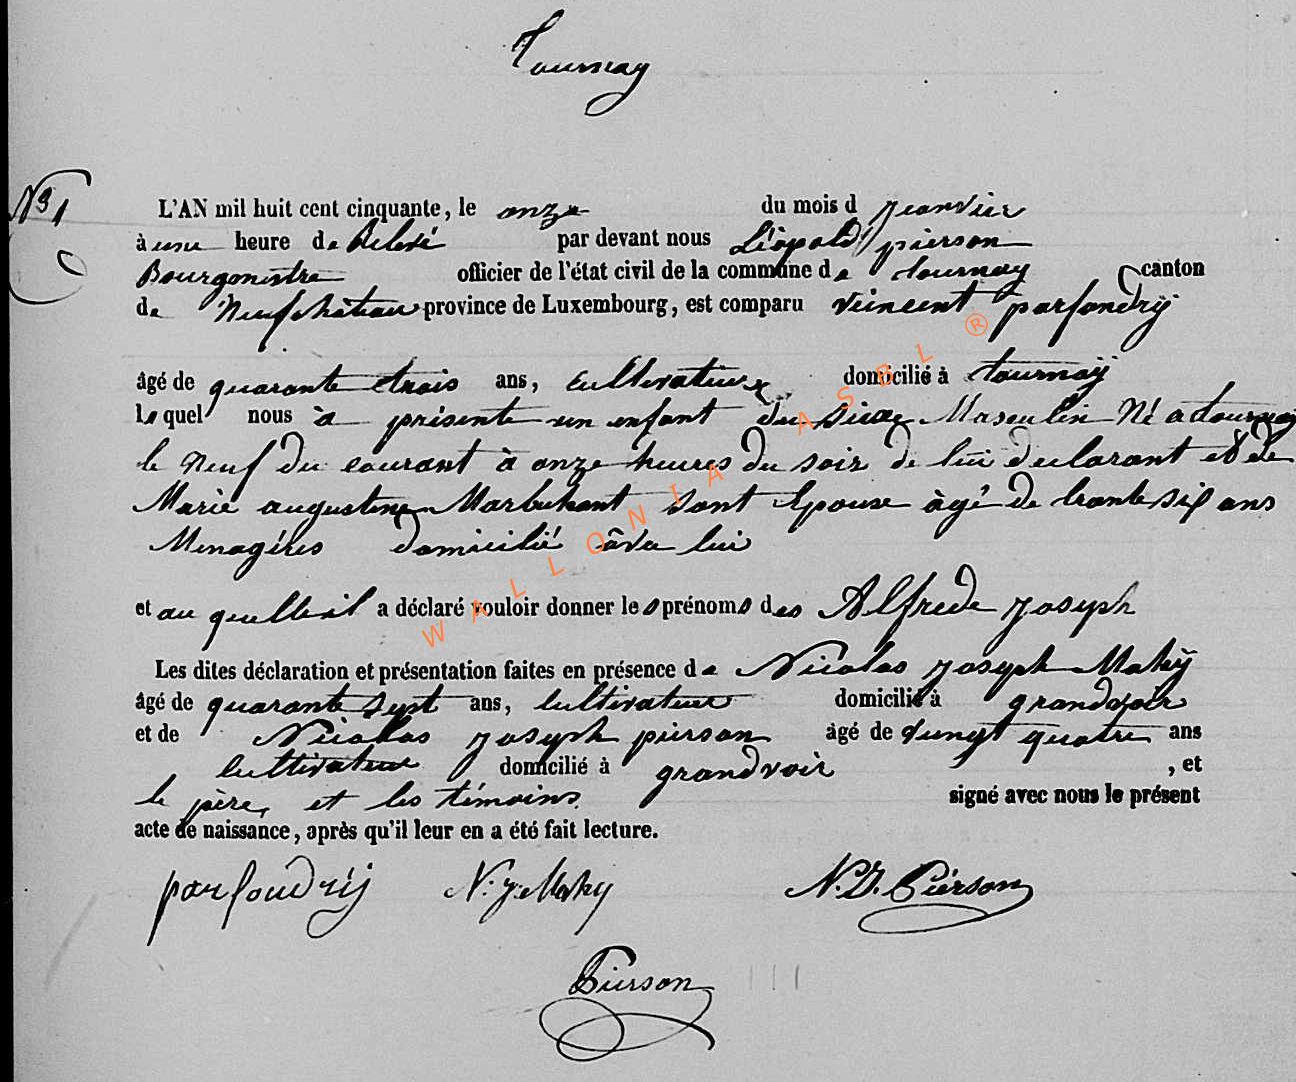 Tournay
N° 1
L'AN mil huit cent cinquante, le onze du mois d janvier
à une heure de Relevé par devant nous Léopold pierson
Bourgmestre officier de l'état civil de la commune de tournay canton
de Neufchâteau province de Luxembourg, est comparu Vincent parfondrÿ
âgé de quarante trois ans, cultivateur domicilié à tournaÿ
lequel nous à présente un enfant du sexe Masculin Né a tournay
le Neuf du courant à onze heures du soir de lui declarant et de
Marie augustine Marbehant sont Epouse àgé de trante six ans
Menagéres domicilié àvec lui
et au quelle il a déclaré vouloir donner les prénoms des Alfrede joseph
Les dites déclaration et présentation faites en présence de Nicolas joseph Mahÿ
âgé de quarante sept ans, cultivateur domicilié à grandvoir
et de Nicolas joseph pierson âgé de vingt quatre ans
cultivateur domicilié à grandvoir , et
le père, et les témoins signé avec nous le présent
acte de naissance, après qu'il leur en a été fait lecture.
parfondrÿ N. J. Mahy N. J. Pierson
Pierson
WALLONIA ASBL ®